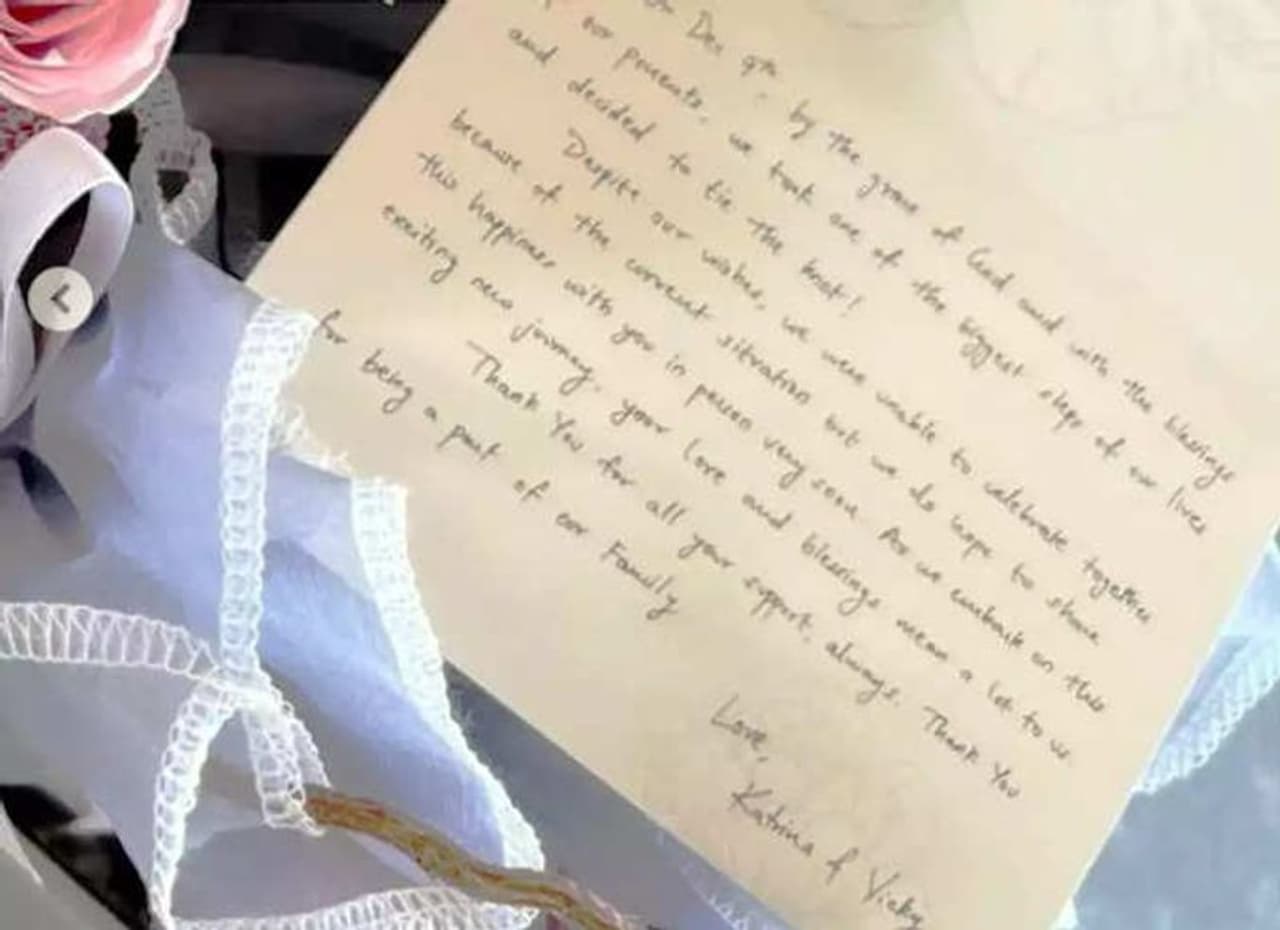 on Dec 9th, by the grace of God and with the blessings
of our parents, we took one of the biggest steps of our lives
and decided to tie the knot!
Despite our wishes, we were unable to celebrate together
because of the current situation but we do hope to share
this happiness with you in person very soon. As we embark on this
exciting new journey, your love and blessings mean a lot to us.
Thank You for all your support, always. Thank You
for being a part of our Family
Love,
Katrina & Vicky
L